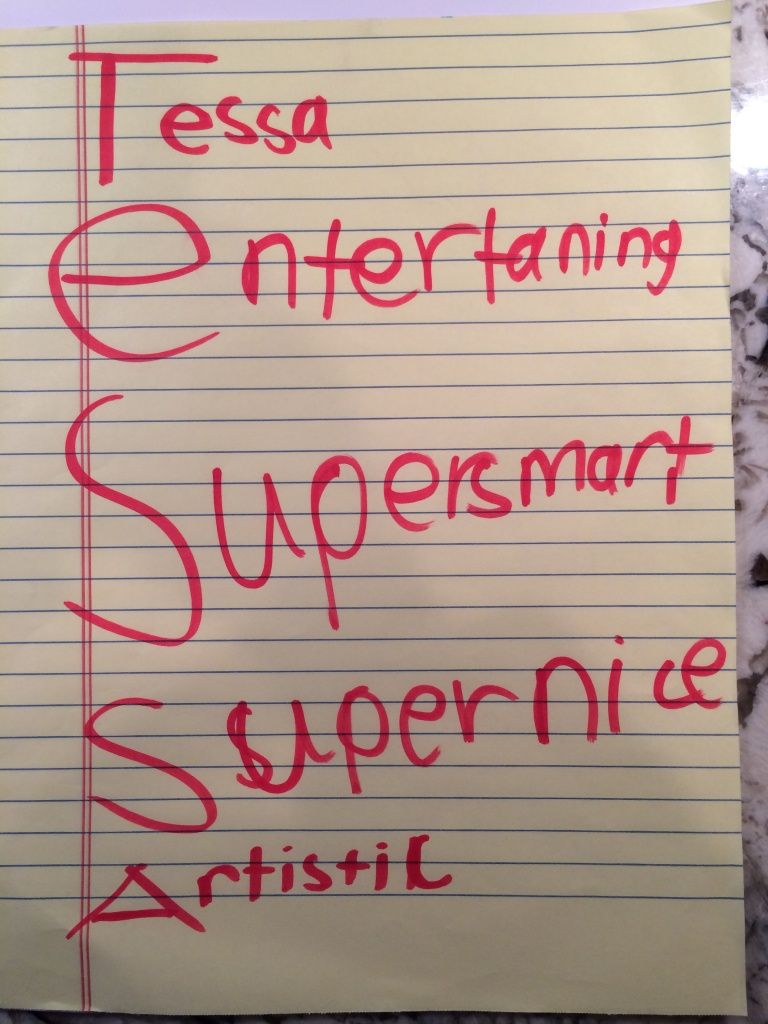 Tessa
entertaning
Supersmart
Supernice
Artistic